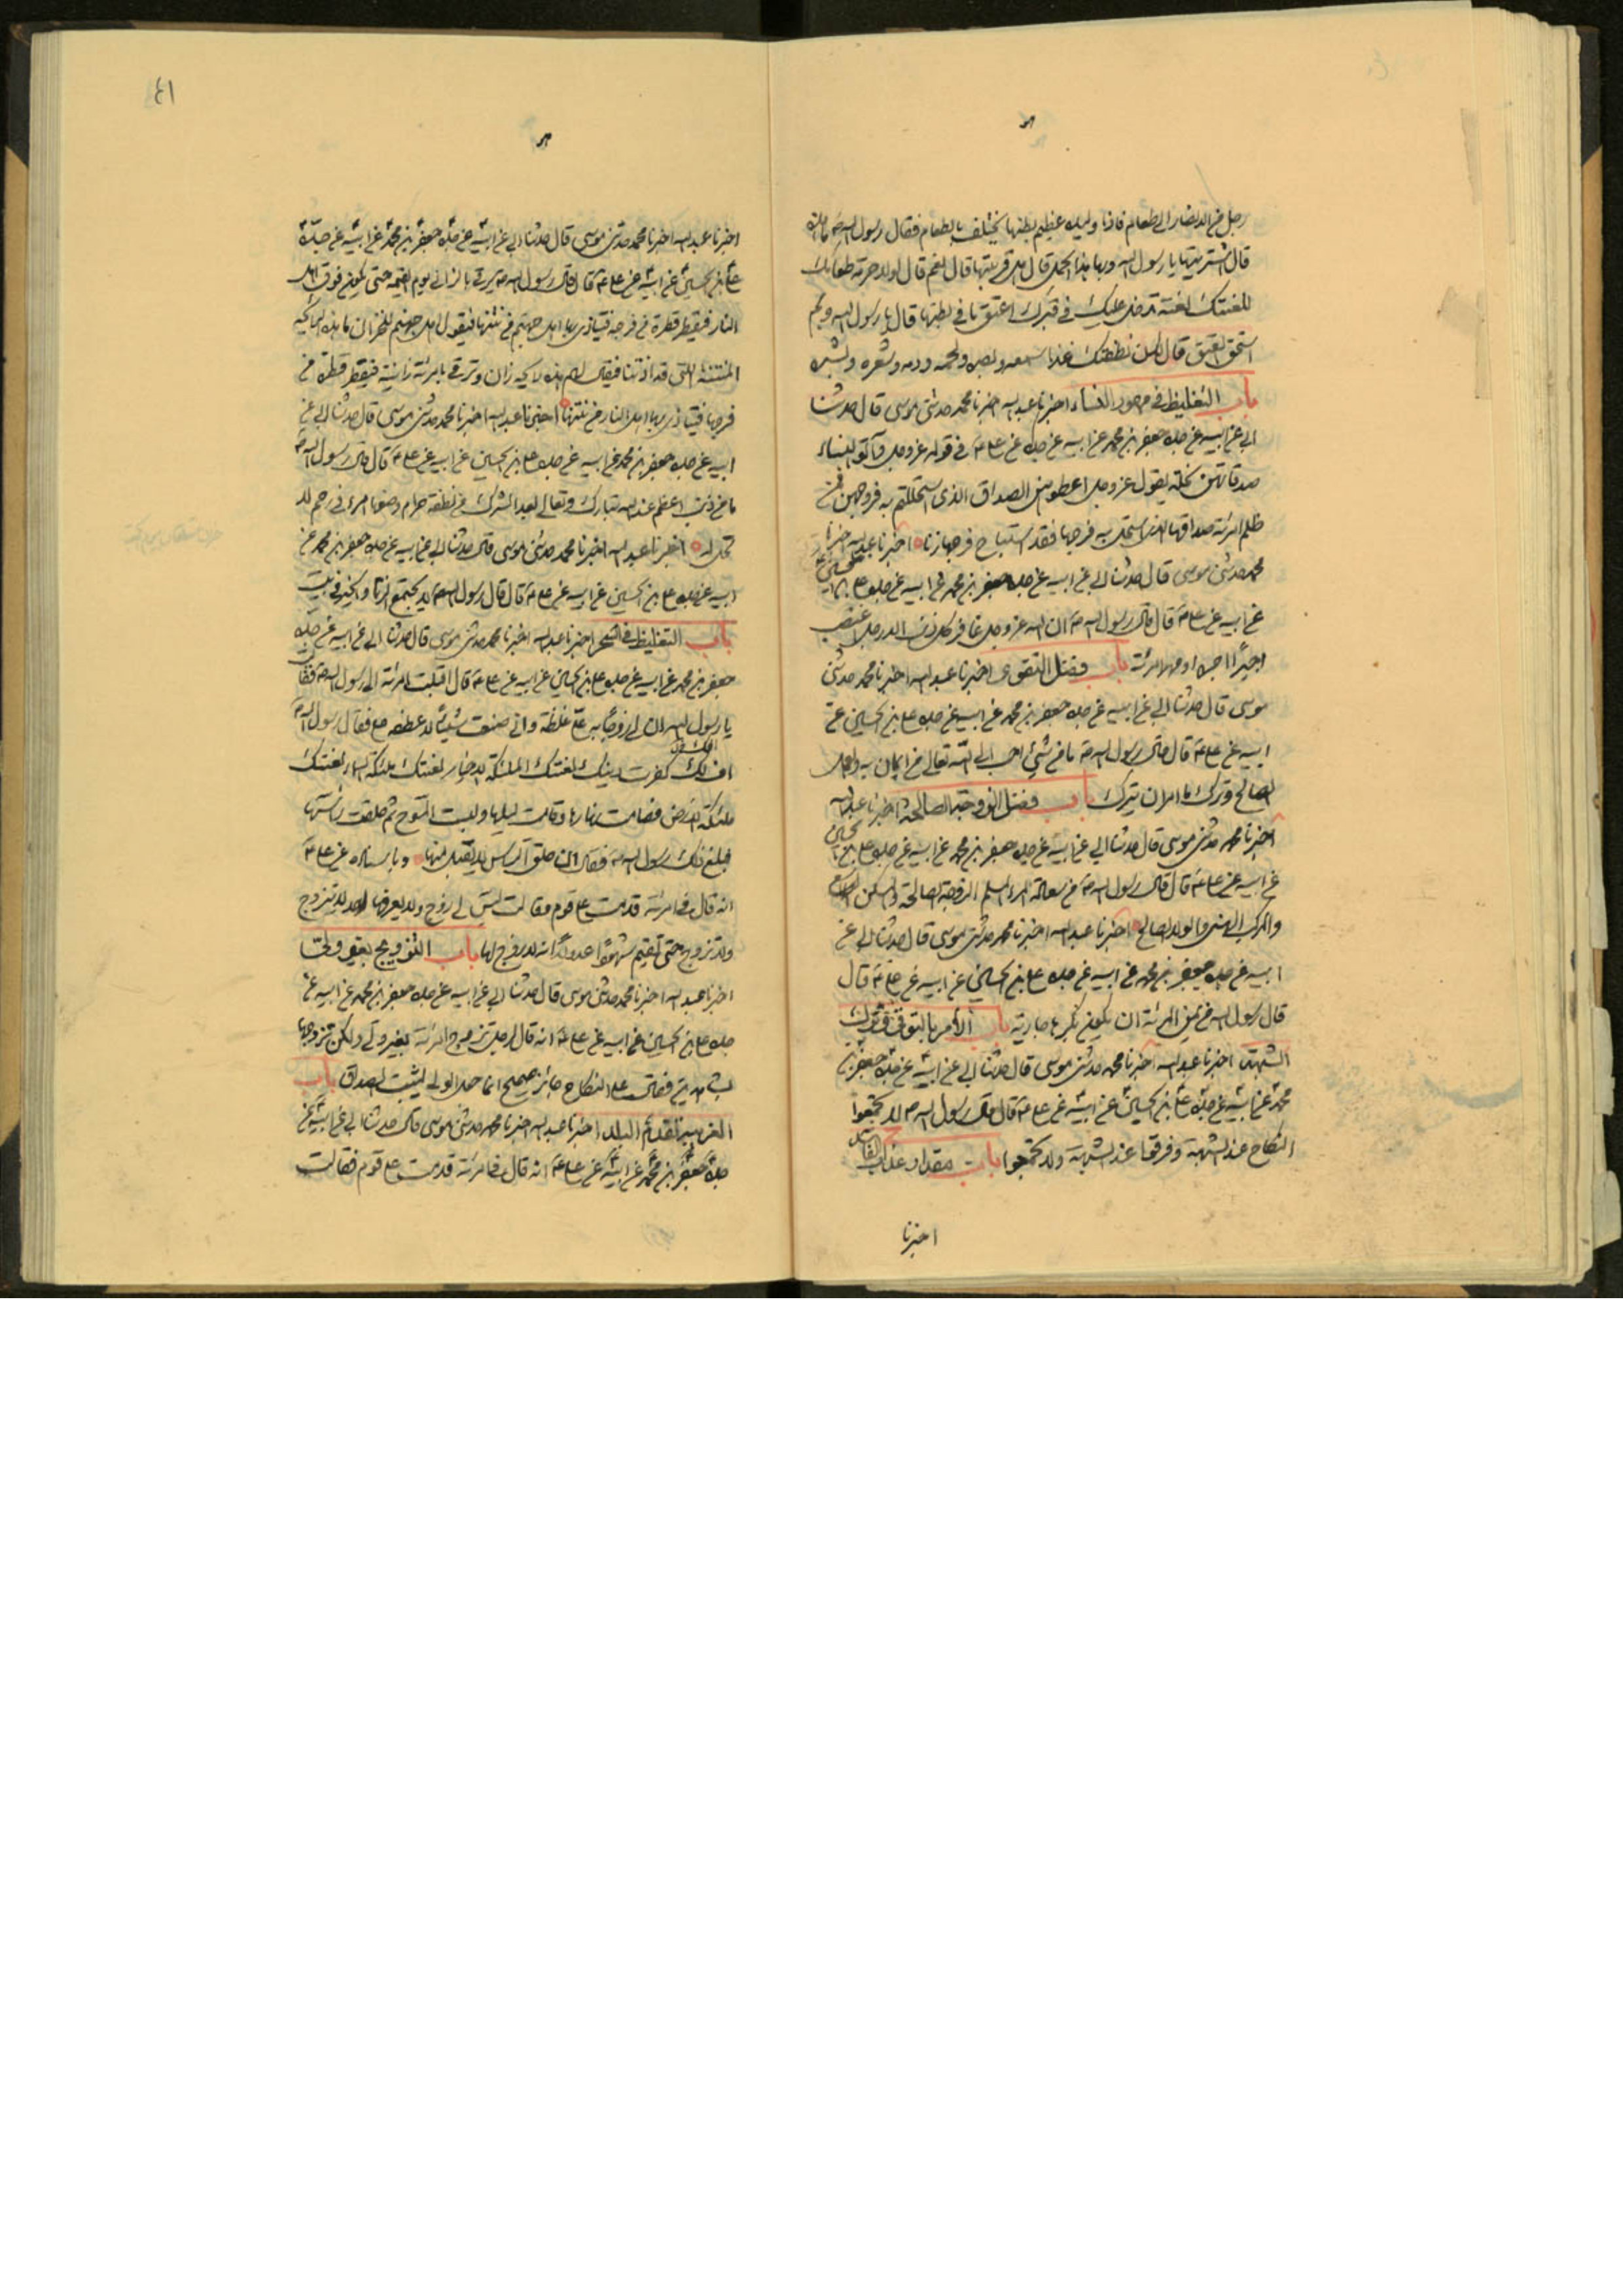 رجل من الانصار الى طعام فاذا وليدة عظيم بطنها تختلف بالطعام فقال رسول الله ص ما هذه
قال اشتريتها يا رسول الله وبها هذا الحمل قال هل قربتها قال نعم قال لولا حرمة طعامك
للعنتك لعنة تدخل عليك في قبرك اعتق ما في بطنها قال يا رسول الله وبم
استحق العتق قال لان نطفتك غذا سمعه وبصره ولحمه ودمه وشعره وبشره
باب التغليظ في مهور النساء اخبرنا عبد الله اخبرنا محمد حدثنى موسى قال حدثنا
ابي عن ابيه عن جده جعفر بن محمد عن ابيه عن جده عن على ع في قوله عز وجل وآتوا النساء
صدقاتهن نحلة يقول عز وجل اعطوهن الصداق الذى استحللتم به فروجهن فمن
ظلم المرئة صداقها الذى استحل به فرجها فقد استباح فرجها زنا اخبرنا عبد الله اخبرنا
محمد حدثنى موسى قال حدثنا ابي عن ابيه عن جده جعفر بن محمد عن ابيه عن جده على بن الحسين
عن ابيه عن على ع قال قال رسول الله ص ان الله عز وجل غافر كل ذنب الا رجل اغتصب
اجيرا اجره او مهر امرئة باب فضل التقوى اخبرنا عبد الله اخبرنا محمد حدثنى
موسى قال حدثنا ابي عن ابيه عن جده جعفر بن محمد عن ابيه عن جده على بن الحسين عن
ابيه عن على ع قال قال رسول الله ص ما من شئ احب الى الله تعالى من ايمان به وعمل
صالح وترك ما امر ان يترك باب فضل الزوجة الصالحة اخبرنا عبد الله
اخبرنا محمد حدثنى موسى قال حدثنا ابي عن ابيه عن جده جعفر بن محمد عن ابيه عن جده على بن الحسين
عن ابيه عن على ع قال قال رسول الله ص من سعادة المرء المسلم الزوجة الصالحة والمسكن الواسع
والمركب الهنى والولد الصالح اخبرنا عبد الله اخبرنا محمد حدثنى موسى قال حدثنا ابي عن
ابيه عن جده جعفر بن محمد عن ابيه عن جده على بن الحسين عن ابيه عن على ع قال
قال رسول الله من يمن المرئة ان يكون بكرها جارية باب الأمر بالتوقى وترك
الشبهة اخبرنا عبد الله اخبرنا محمد حدثنى موسى قال حدثنا ابي عن ابيه عن جده جعفر بن
محمد عن ابيه عن جده على بن الحسين عن ابيه عن على ع قال قال رسول الله ص لا تجمعوا
النكاح عند الشبهة وفرقوا عند الشبهة ولا تجمعوا باب مقدار عذاب
اخبرنا
٤١
اخبرنا عبد الله اخبرنا محمد حدثنى موسى قال حدثنا ابي عن ابيه عن جده جعفر بن محمد عن ابيه عن جده
على بن الحسين عن ابيه عن على ع قال قال رسول الله ص يرقى بالزانى يوم القيمة حتى يكون فوق اهل
النار فيقطر قطرة من فرجه فيتاذى بها اهل جهنم من نتنها فيقول اهل جهنم للخزان ما هذه الرائحة
المنتنة التى قد اذتنا فيقال لهم هذه رائحة زان وترقى بامرئة زانية فيقطر قطرة من
فرجها فيتاذى بها اهل النار من نتنها اخبرنا عبد الله اخبرنا محمد حدثنى موسى قال حدثنا ابي عن
ابيه عن جده جعفر بن محمد عن ابيه عن جده على بن الحسين عن ابيه عن على ع قال قال رسول الله ص
ما من ذنب اعظم عند الله تبارك وتعالى بعد الشرك من نطفة حرام وضعها امرء في رحم لا
تحل له اخبرنا عبد الله اخبرنا محمد حدثنى موسى قال حدثنا ابي عن ابيه عن جده جعفر بن محمد عن
ابيه عن جده على بن الحسين عن ابيه عن على ع قال قال رسول الله ص لا يجتمع الزنا والخير في بيت
باب التغليظ في السحر اخبرنا عبد الله اخبرنا محمد حدثنى موسى قال حدثنا ابي عن ابيه عن جده
جعفر بن محمد عن ابيه عن جده على بن الحسين عن ابيه عن على ع قال اقبلت امرئة الى رسول الله ص فقالت
يا رسول الله ان لى زوجا به على غلظة وانى صنعت شيئا لاعطفه على فقال رسول الله ص
اف لك كفرت دينك لعنتك الملئكة الاخيار لعنتك ملئكة السماء لعنتك
ملئكة الارض فصامت نهارها وقامت ليلها ولبست المسوح ثم حلقت رأسها
فبلغ ذلك رسول الله ص فقال ان حلق الرأس لا يقبل منها وباسناده عن على ع
انه قال في امرئة قدمت على قوم وقالت ليس لى زوج ولا يعرفها احد لا تتزوج
ولا تزوج حتى تقيم شهودا عدولا انه لا زوج لها باب التزويج بغير ولى
اخبرنا عبد الله اخبرنا محمد حدثنى موسى قال حدثنا ابي عن ابيه عن جده جعفر بن محمد عن ابيه عن
جده على بن الحسين عن ابيه عن على ع انه قال لرجل تزوج امرئة بغير ولى ولكن تزوجها
بشاهدين فقال على النكاح جائز صحيح انما جعل الولى ليثبت الصداق باب
الغريبة تقدم البلد اخبرنا عبد الله اخبرنا محمد حدثنى موسى قال حدثنا ابي عن ابيه عن
جده جعفر بن محمد عن ابيه عن على ع انه قال في امرئة قدمت على قوم فقالت